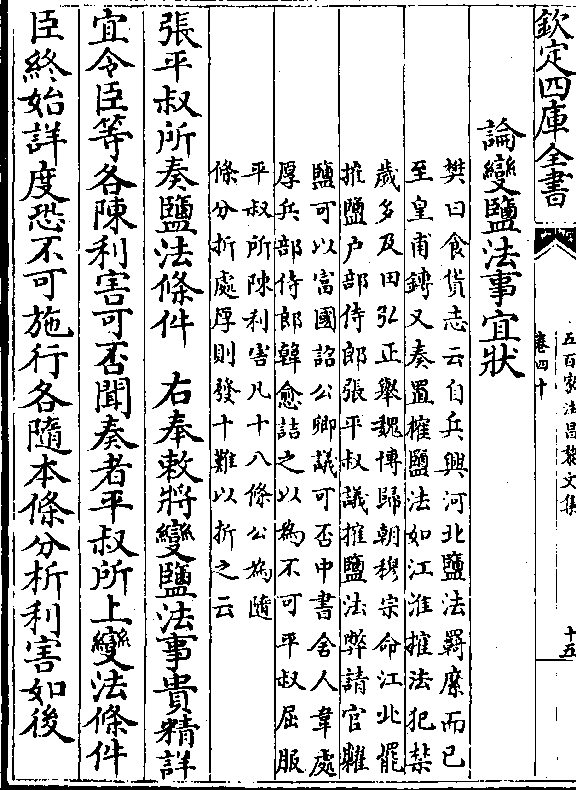 欽定四庫全書
五百家注昌黎文集
卷四十
十五
論變鹽法事宜狀
樊曰食貨志云自兵興河北鹽法羈縻而已
至皇甫鎛又奏置榷鹽法如江淮榷法犯禁
歲多及田弘正舉魏博歸朝穆宗命河北罷
榷鹽户部侍郎張平叔議榷鹽法弊請官糶
鹽可以富國詔公卿議可否中書舍人韋處
厚兵部侍郎韓愈詰之以為不可平叔屈服
平叔所陳利害凡十八條公為隨
條分折處厚則發十難以折之云
張平叔所奏鹽法條件　右奉敕將變鹽法事貴精詳
宜令臣等各陳利害可否聞奏者平叔所上變法條件
臣終始詳度恐不可施行各隨本條分析利害如後